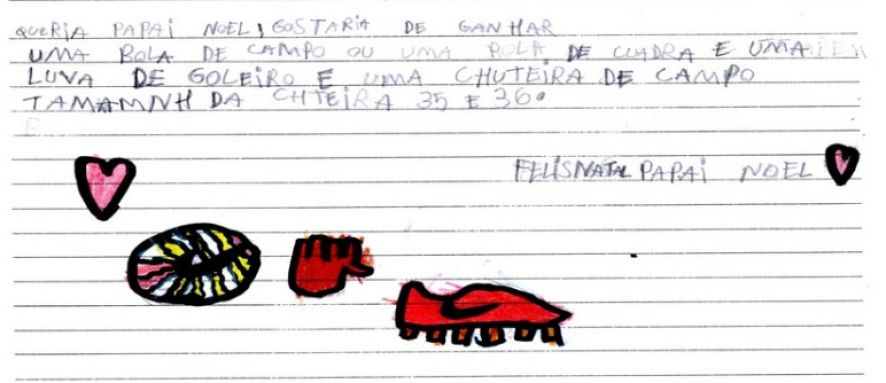 QUERIA PAPAI NOEL, GOSTARIA DE GANHAR
UMA BOLA DE CAMPO OU UMA BOLA DE CUADRA E UMA
LUVA DE GOLEIRO E UMA CHUTEIRA DE CAMPO
TAMAMNH DA CHTEIRA 35 E 36.
FELISNATAL PAPAI NOEL